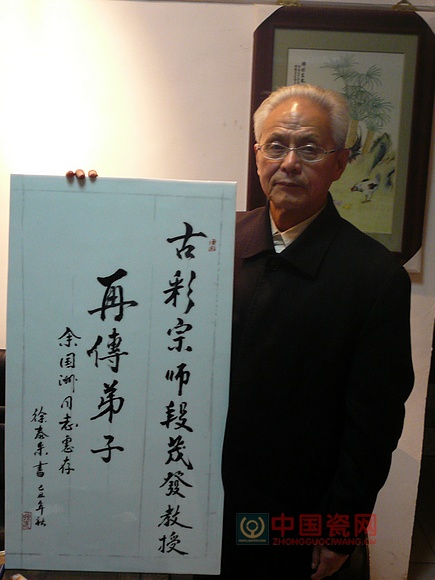 古彩宗师段茂發教授
再傳弟子
余国洲同志惠存
徐春来書 己丑年秋
中国瓷网
ZHONGGUOCIWANG.CN